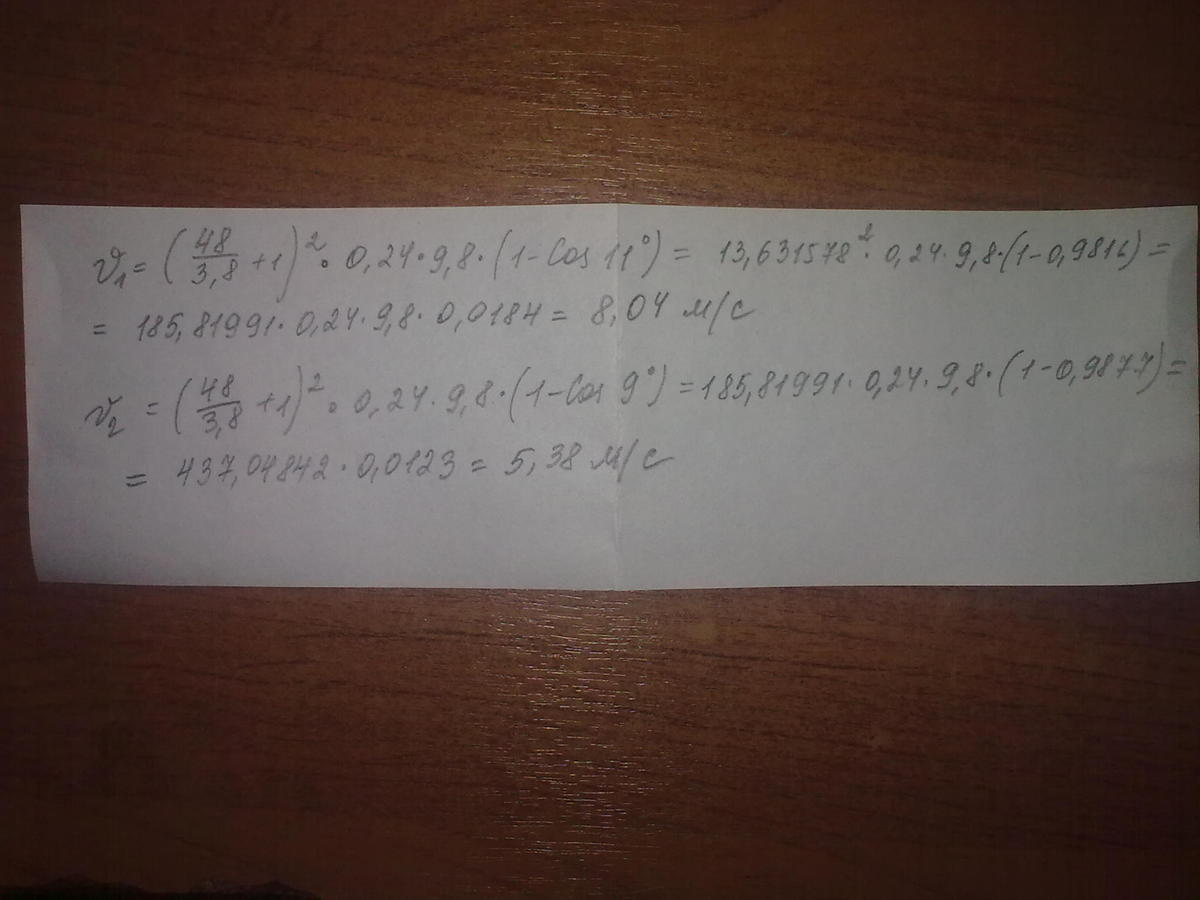 v₁ = (48/3,8 + 1)² · 0,24 · 9,8 · (1 - Cos 11°) = 13,631578² · 0,24 · 9,8 · (1 - 0,9816) =
= 185,81991 · 0,24 · 9,8 · 0,0184 = 8,04 м/с
v₂ = (48/3,8 + 1)² · 0,24 · 9,8 · (1 - Cos 9°) = 185,81991 · 0,24 · 9,8 · (1 - 0,9877) =
= 437,04842 · 0,0123 = 5,38 м/с